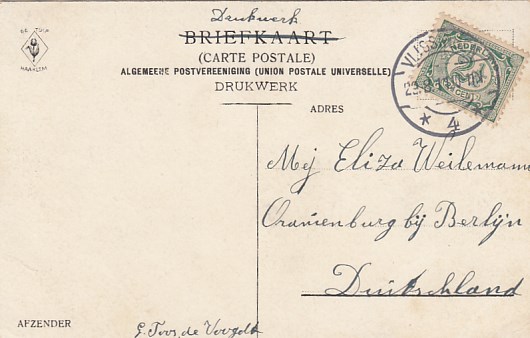 Drukwerk
BRIEFKAART
(CARTE POSTALE)
ALGEMEENE POSTVEREENIGING (UNION POSTALE UNIVERSELLE)
DRUKWERK
HAARLEM
NEDERL
CENT
VLISS
23.8.
4
ADRES
Mej Eliza Weilemann
Oranienburg bij Berlijn
Duitschland
AFZENDER
G. Toos de Voogdt